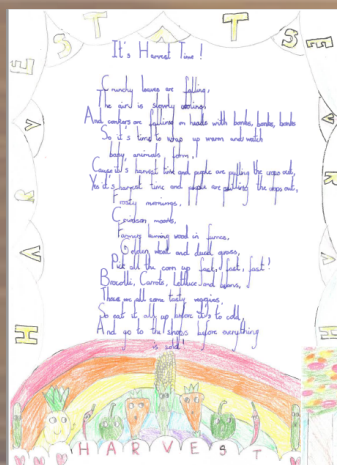 HARVEST TIME
It's Harvest Time!
Crunchy leaves are falling,
The wind is slowly
And conkers are falling on heads with bonks, bonks, bonks
So it's time to wrap up warm and watch
baby animals form,
Cause it's harvest time and people are putting the crops out,
Yes it's harvest time and people are putting the crops out,
Frosty mornings,
Crimson moons,
Farmers burning wood in
Golden wheat and dead grass,
Pick all the corn up fast, fast, fast!
Broccolli, Carrots, lettuce and
These are all some tasty veggies,
So eat it all up before it's to cold,
And go to the shops before everything
is sold!
HARVEST